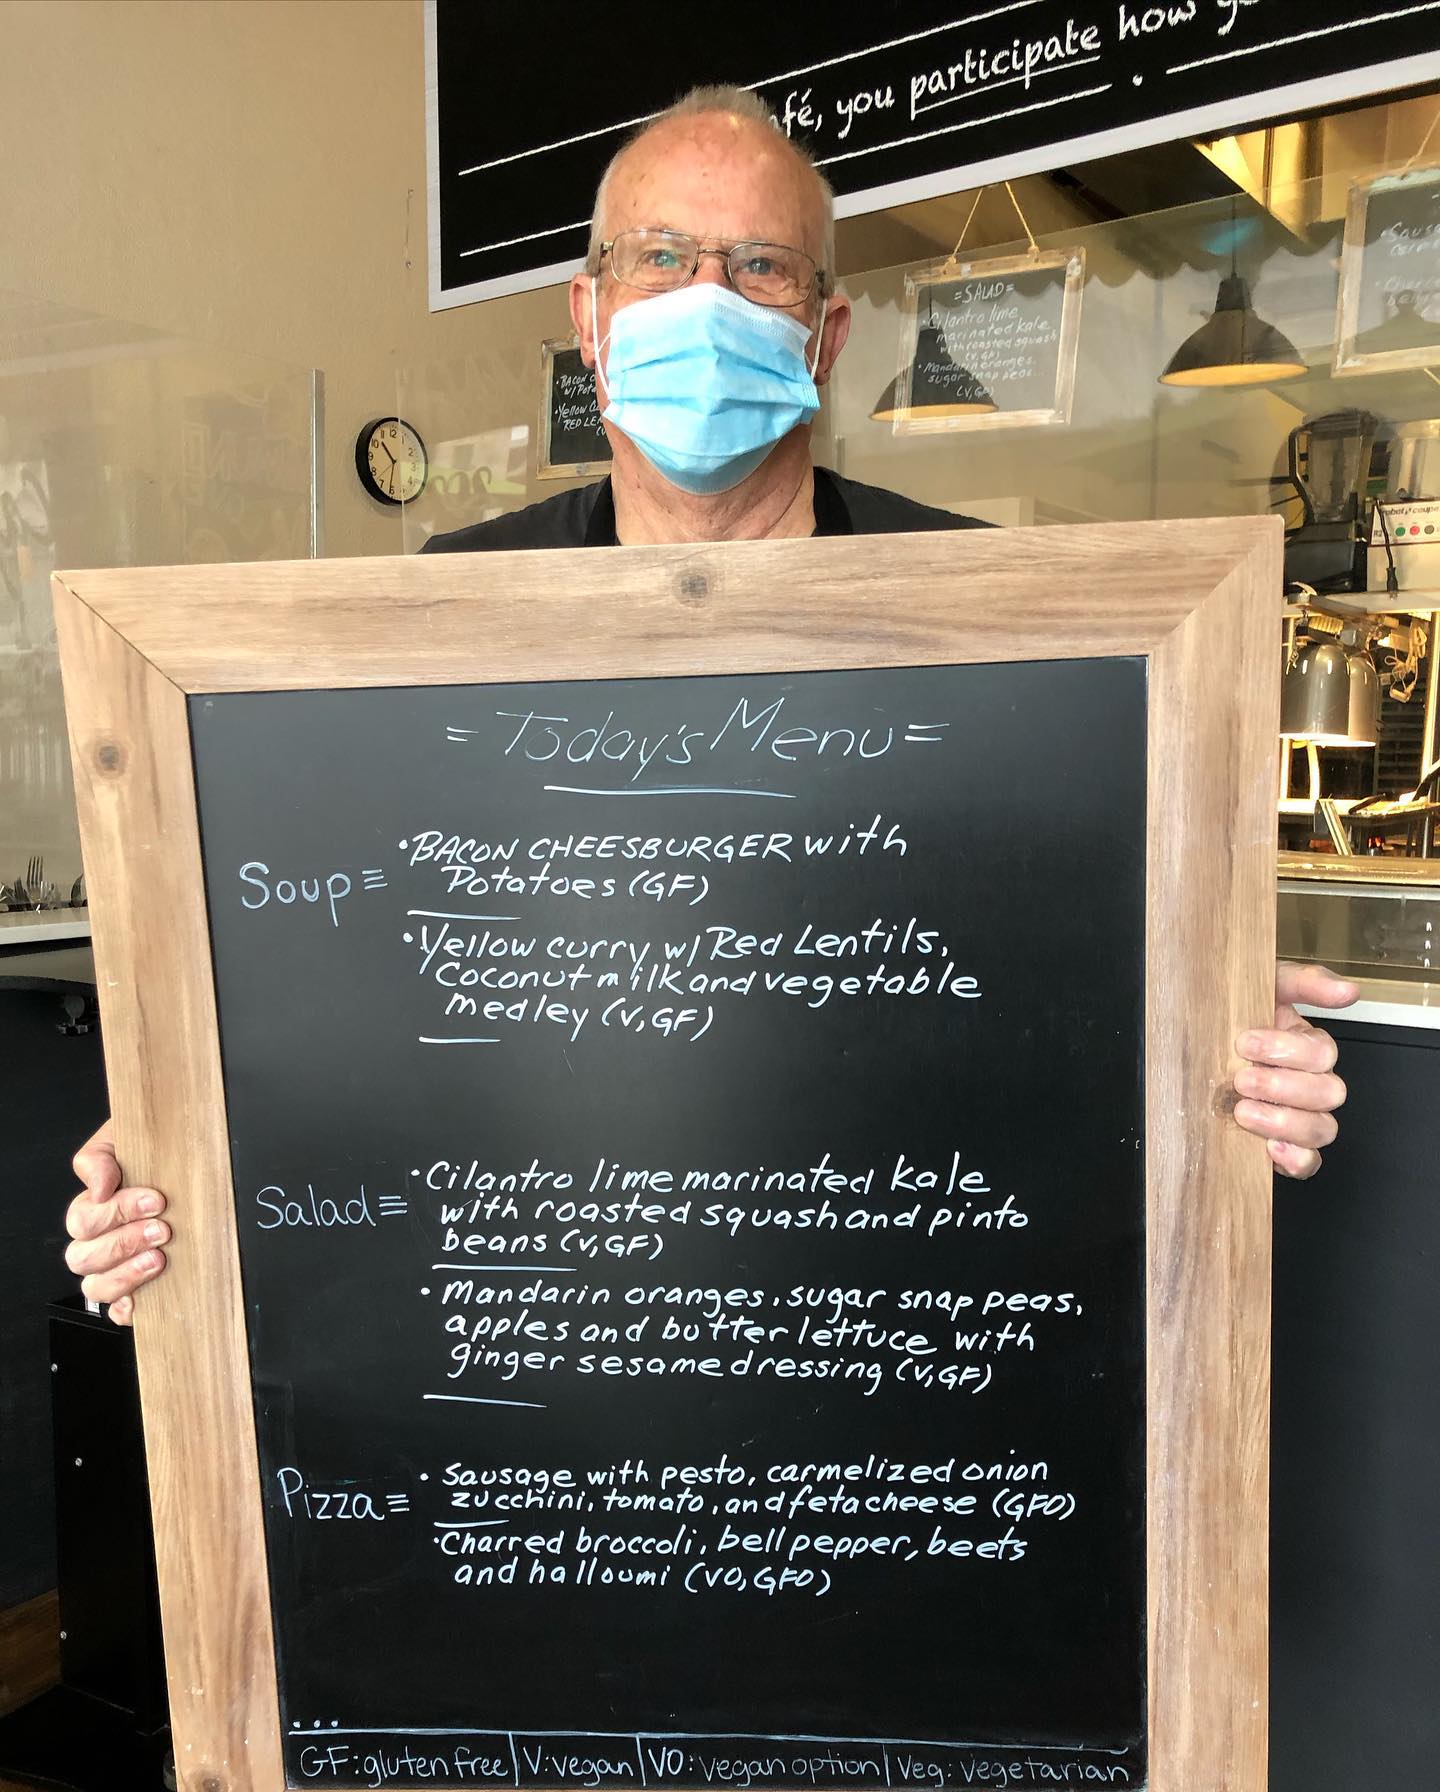 fé, you participate how
=SALAD=
•Cilantro lime
marinated kale
with roasted squash
(V, GF)
•Mandarin oranges,
sugar snap peas...
(V, GF)
•BACON
w/ Pota
•Yellow Cu
RED LEN
robot coupe
= Today's Menu =
Soup≡
•BACON CHEESBURGER with
Potatoes (GF)
•Yellow curry w/ Red Lentils,
Coconut milk and vegetable
medley (V, GF)
Salad≡
•Cilantro lime marinated kale
with roasted squash and pinto
beans (V, GF)
•Mandarin oranges, sugar snap peas,
apples and butter lettuce with
ginger sesame dressing (V, GF)
Pizza≡
•Sausage with pesto, carmelized onion
zucchini, tomato, and feta cheese (GFO)
•Charred broccoli, bell pepper, beets
and halloumi (VO, GFO)
...
GF: gluten free | V: vegan | VO: vegan option | Veg: vegetarian